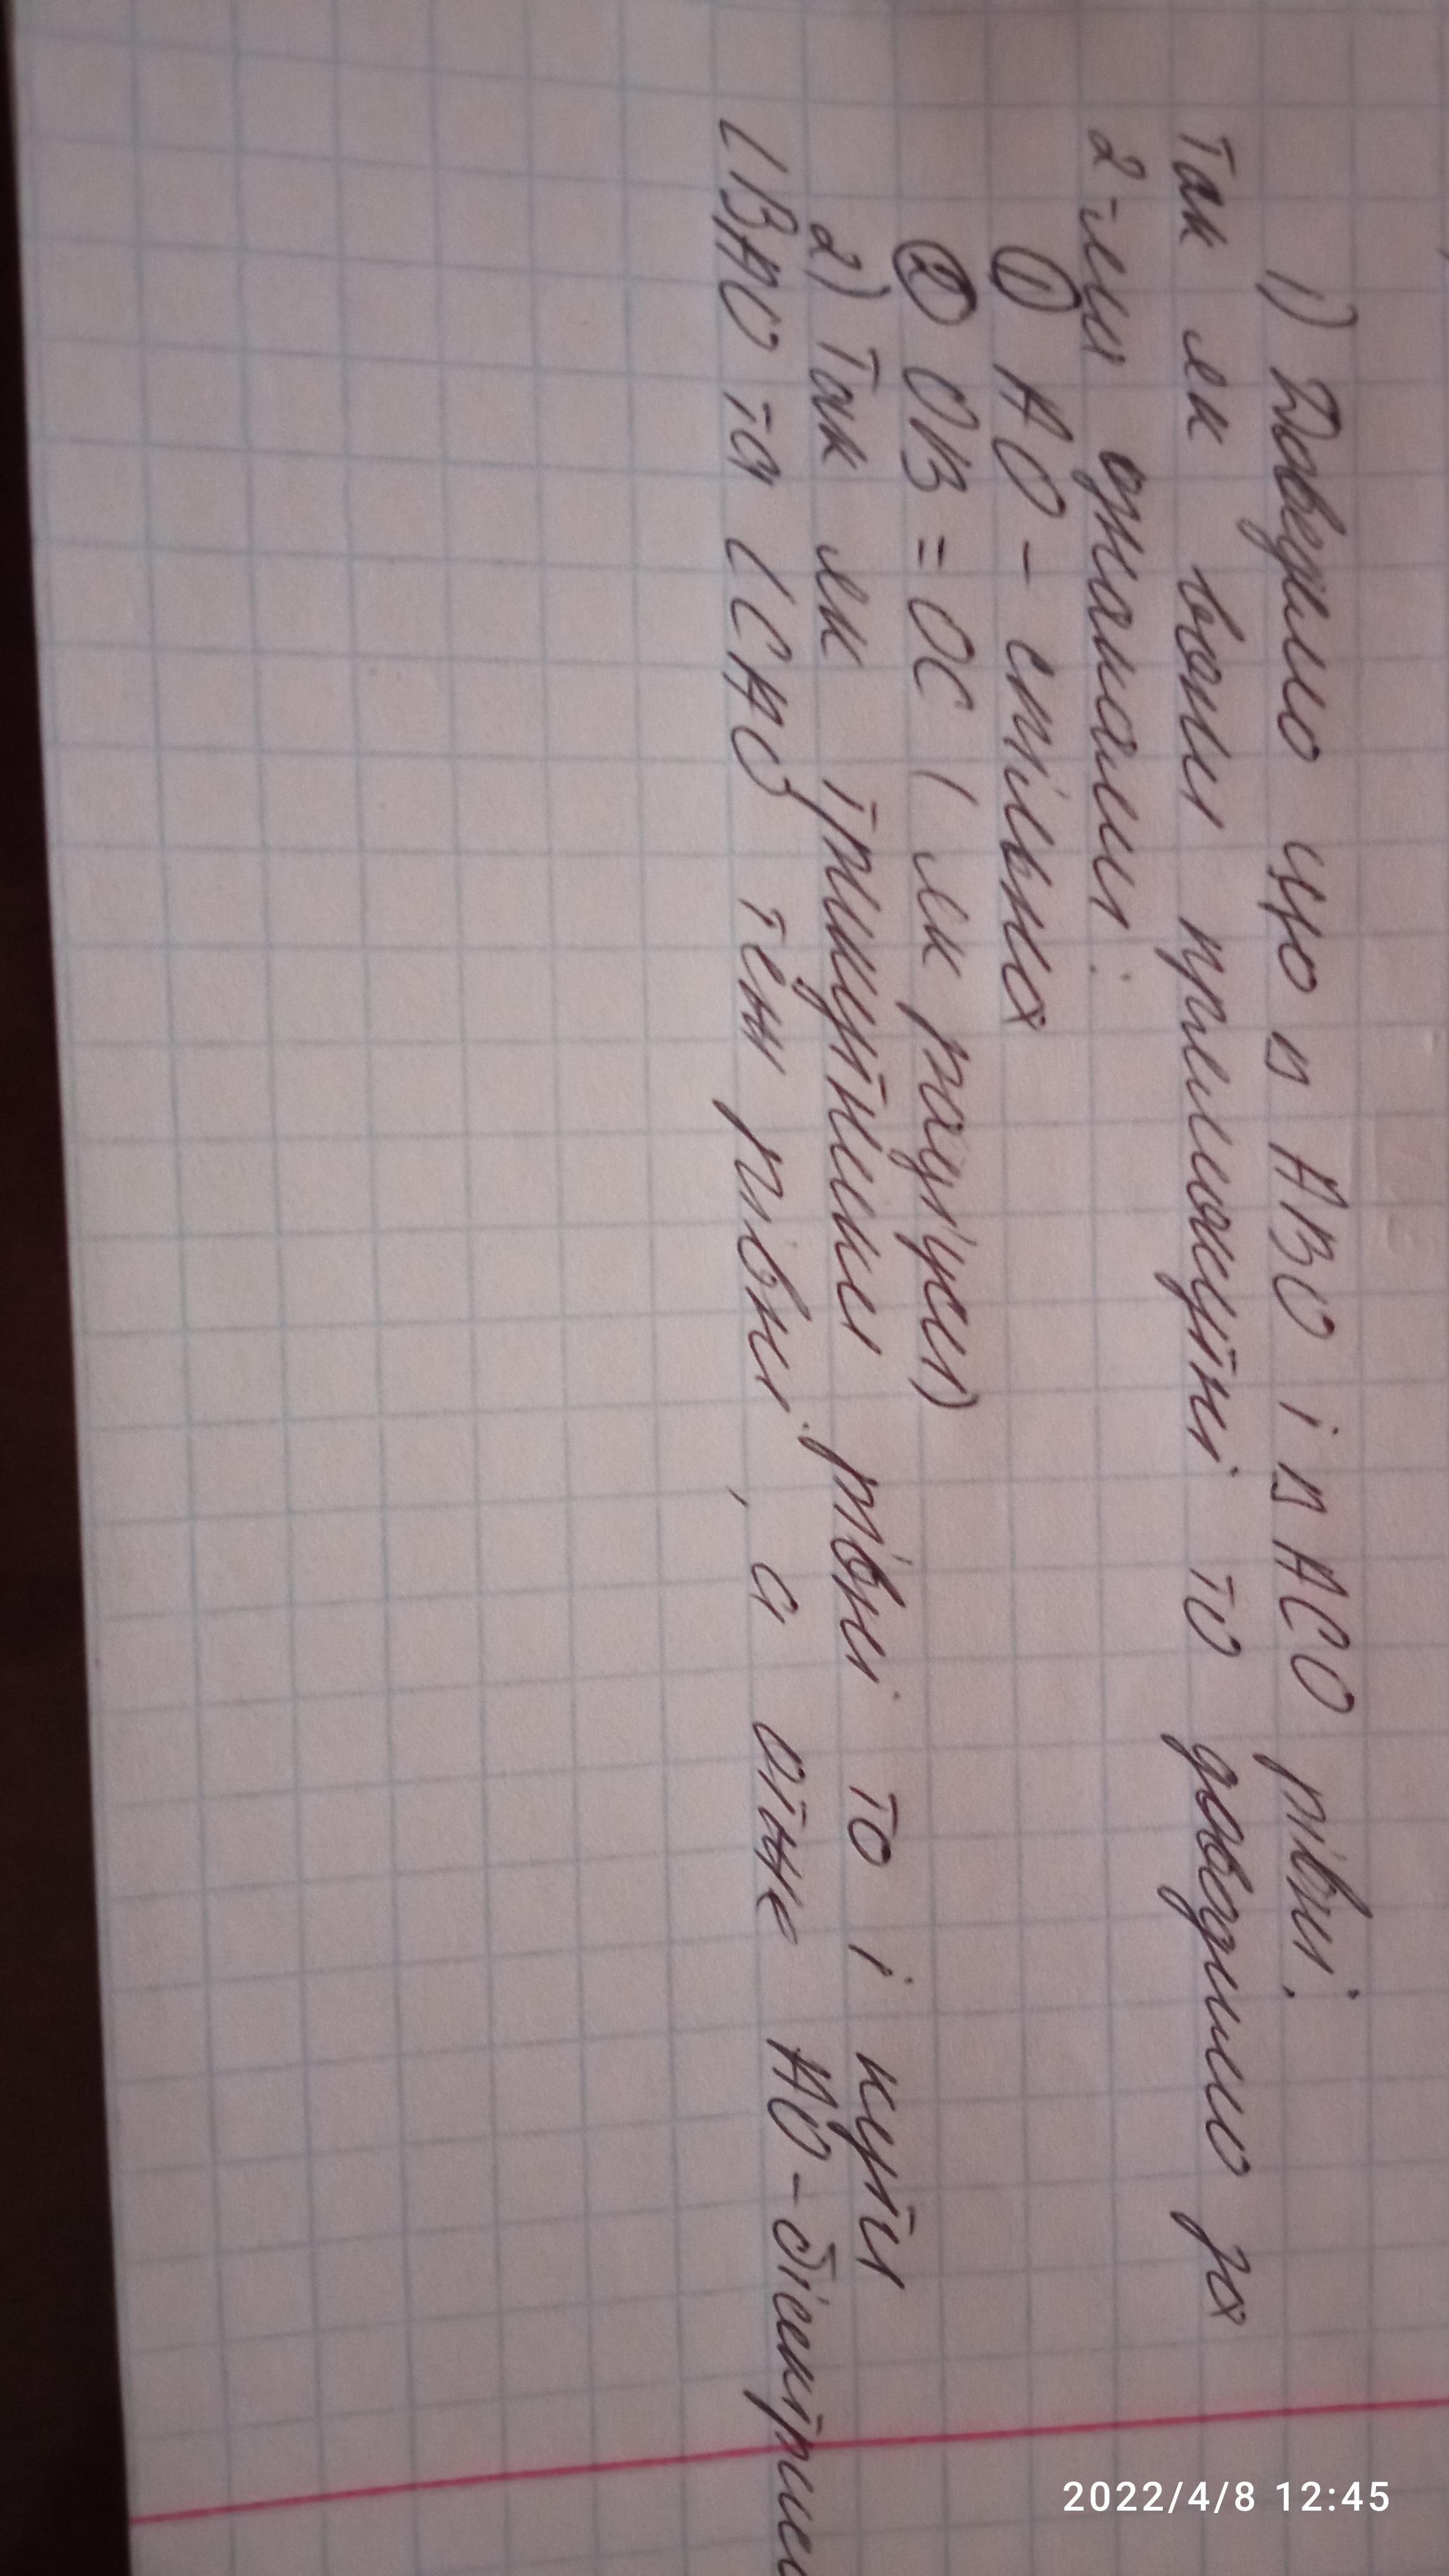 1) Доведимо що △ ABO і △ ACO рівні.
Так як вони прямокутні то доведимо за
2-ми ознаками:
① AO - спільна
② OB = OC ( як радіуси)
2) Так як трикутники рівні то і кути
∠BAO та ∠CAO теж рівні, а отже AO - бісектриса
2022/4/8 12:45